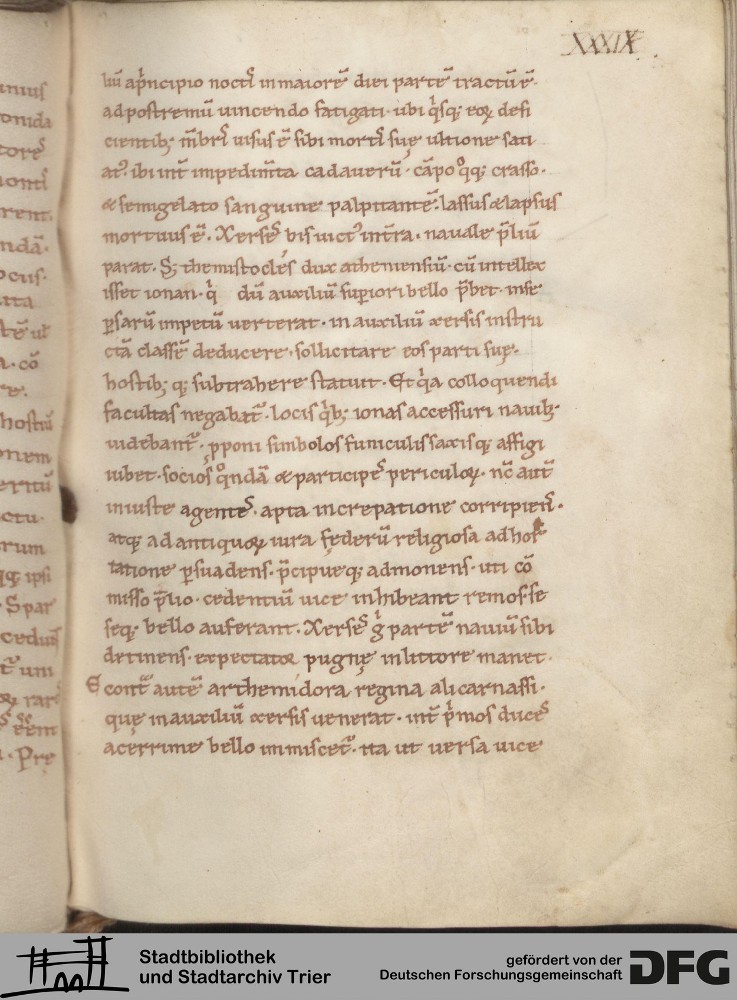 XXXIX
liū ap̄ncipio noctꝭ inmaiorē diei partē tractū ē·
adpostremū uincendo fatigati· ubi q̇sq; eoꝝ defi
cientib; m̄brꝭ uisus ē sibi mortꝭ suę ultione sati
at᷒· ibi int̄ impedim̄ta cadauerū· cāpo q̊q; crasso·
& semigelato sanguine palpitantē· lassus & lapsus
mortuus ē. Xerseˢ bis uict᷒ int̄ra· nauale p̄liū
parat. S; themistocles dux atheniensiū· cū intellex
isset ionas· q̇ dū auxiliū supiori bello p̄bet· inse
ꝑsarū impetū uerterat· in auxiliū xersis instru
ctā classē deducere· sollicitare eos parti suę·
hostib; q; subtrahere statuit. Et q̇a colloquendi
facultas negabat᷑· locis q̇b; ionas accessuri nauib;
uidebant᷑· ꝓponi simbolos funiculis saxisq; affigi
iubet· socios q̊ndā & participeˢ periculoꝝ· nc̄ aut̄
iniuste agenteˢ· apta increpatione corripienˢ·
atq; ad antiquoꝝ iura federū religiosa adhor
tatione ꝑsuadens· p̄cipueq; admonens· uti cō
misso p̄lio· cedentiū uice inhibeant remos se
seq; bello auferant. Xerseˢ g̊ partē nauiū sibi
detinens· expectator pugnę inlittore manet·
E cont̄ autē arthemidora regina alicarnassi·
quę inauxiliū xersis uenerat· int̄ ṗmos duceˢ
acerrime bello inmiscet᷑· ita ut uersa uice
Stadtbibliothek
und Stadtarchiv Trier
gefördert von der
Deutschen Forschungsgemeinschaft
DFG